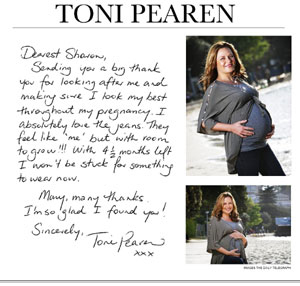 TONI PEAREN
Dearest Sharon,
Sending you a big thank
you for looking after me and
making sure I look my best
throughout my pregnancy. I
absolutely love the jeans. They
feel like 'me' but with room
to grow!!! With 4½ months left
I won't be stuck for something
to wear now.
Many, many thanks.
I'm so glad I found you!
Sincerely,
Toni Pearen
xxx
IMAGES THE DAILY TELEGRAPH